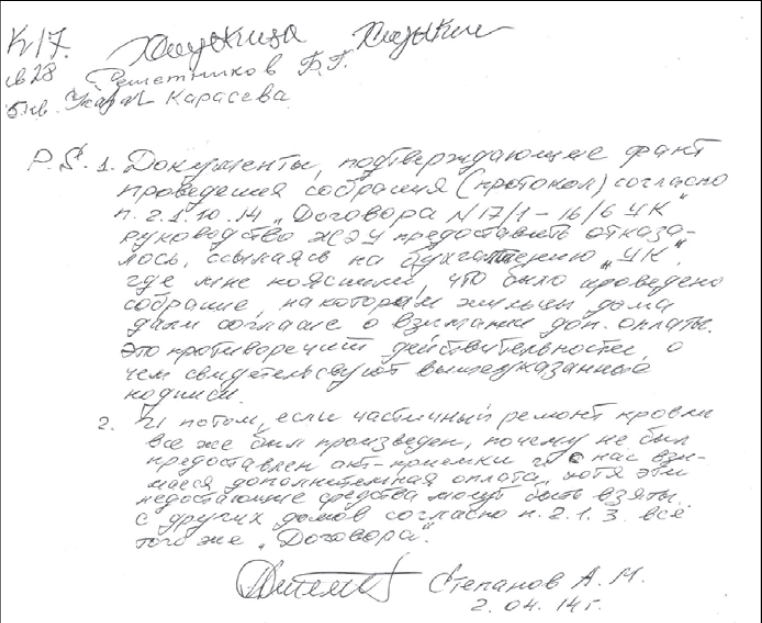 К17. Хлызкиза Хлызкин
кв 28 Решетников Б.Г.
5 кв. Карасева
P.S. 1. Документы, подтверждающие факт
проведения собрания (протокол) согласно
п. 2.1.10.14 „Договора N17/1-16/6 УК"
руководство ЖЭУ предоставить отказа-
лось, ссылаясь на бухгалтерию „УК",
где мне пояснили, что было проведено
собрание, на котором жильцы дома
дали согласие о взимании доп. оплаты.
Это противоречит действительности, о
чем свидетельсвуют вышеуказанные
подписи.
2. И потом, если частичный ремонт кровли
все же был произведен, почему не был
предоставлен акт-приемки и с нас взи-
мается дополнительная оплата, хотя эти
недостающие средства могут быть взяты
с других домов согласно п. 2.1.3. всё
того же „Договора".
Степанов А.М.
2.04.14г.